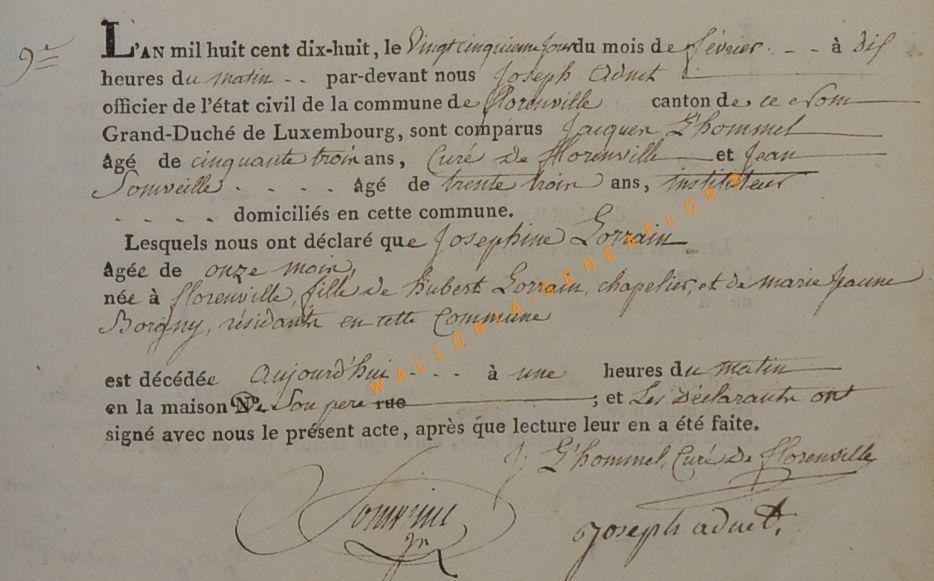 9e
L'AN mil huit cent dix-huit, le Vingt cinquieme jour du mois de février - - à dix
heures du matin - - par-devant nous Joseph Adnet
officier de l'état civil de la commune de florenville canton de ce nom
Grand-Duché de Luxembourg, sont comparus Jacques L'hommel
âgé de cinquante trois ans, Curé de florenville et Jean
Somveille - - - - - âgé de trente trois ans, instituteur
- - - - - domiciliés en cette commune.
Lesquels nous ont déclaré que Josephine Lorrain
âgée de onze mois,
née à florenville, fille de hubert Lorrain, chapelier, et de marie Jeanne
Borgny, résidants en cette Commune
est décédée aujourd'hui - - - à une heures du matin
en la maison N°. de Son pere rue ; et Les déclarants ont
signé avec nous le présent acte, après que lecture leur en a été faite.
J: L'hommel, Curé de florenville
Joseph adnet.
WALLONIA-GENEAFLOR©